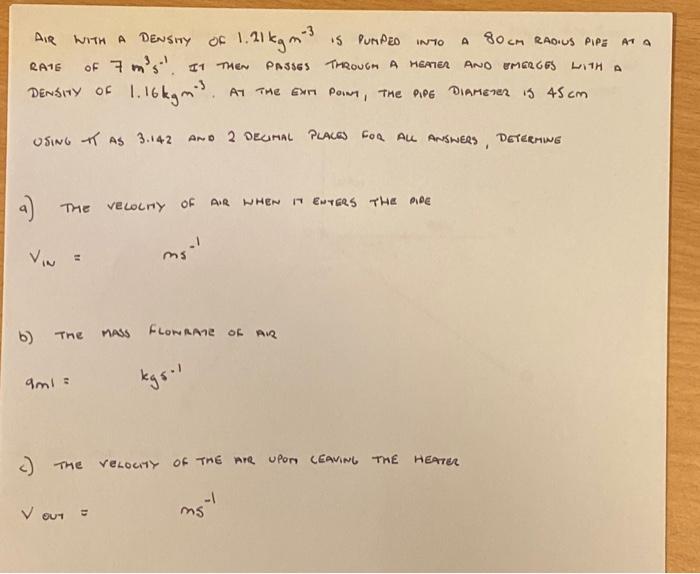 AIR WITH A DENSITY OF 1.21 kg m⁻³ IS PUMPED INTO A 80 cm RADIUS PIPE AT A
RATE OF 7 m³ s⁻¹. IT THEN PASSES THROUGH A HEATER AND EMERGES WITH A
DENSITY OF 1.16 kg m⁻³. AT THE EXIT POINT, THE PIPE DIAMETER IS 45 cm
USING π AS 3.142 AND 2 DECIMAL PLACES FOR ALL ANSWERS, DETERMINE
a) THE VELOCITY OF AIR WHEN IT ENTERS THE PIPE
V IN = ms⁻¹
b) THE MASS FLOWRATE OF AIR
qm1 = kgs⁻¹
c) THE VELOCITY OF THE AIR UPON LEAVING THE HEATER
V OUT = ms⁻¹